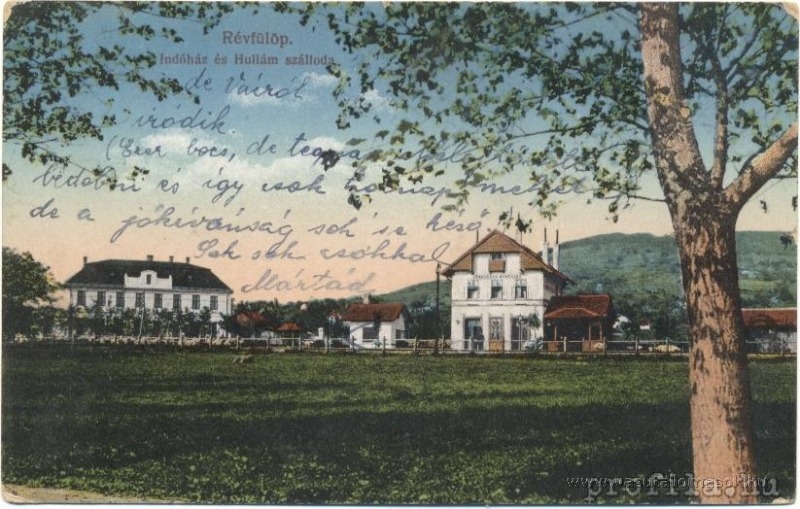 Révfülöp.
Indóház és Hullám szálloda.
de
iródik
(Ezer bocs, de tegnap
bedobni és így csak holnap mehet
de a jókivánság soh'se késő
Sok sok csókkal
Mártád
www.vasutallomasok.hu
profila.hu